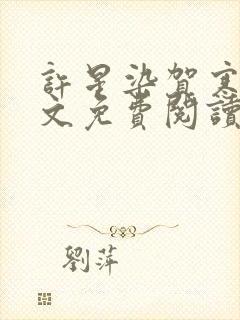 許星染賀寒
文免費閱讀
劉萍